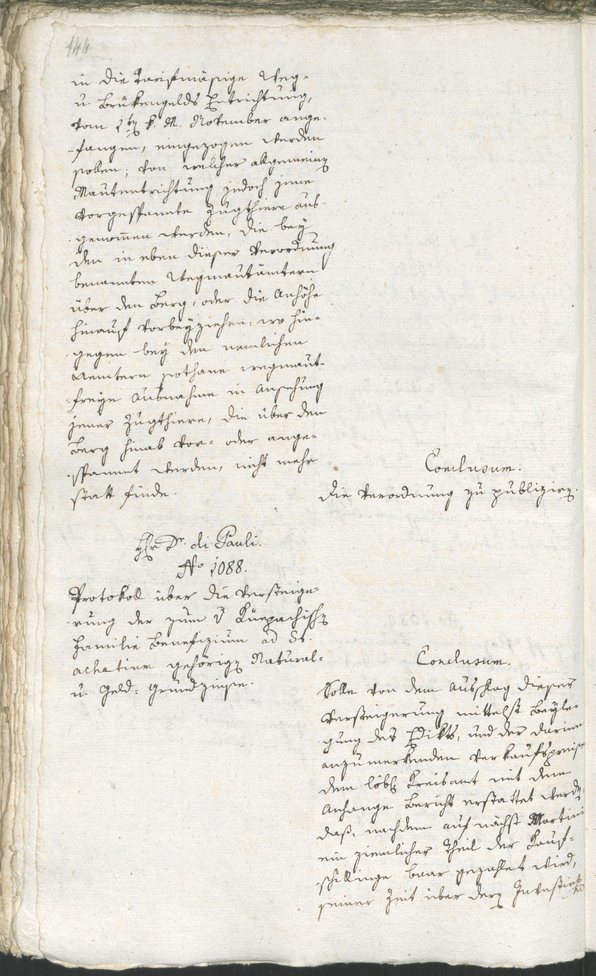 144
in die Tariffmäsige Weg-
u. Brükengelds Entrichtung,
vom 1ten k. M. November ange-
fangen, eingezogen werden
sollen; von welcher allgemeinen
Mautentrichtung jedoch jene
vorgespannte Zugthiere aus-
genommen werden, die bey
den in eben dieser Verordnung
benannten Wegmautämtern
über den Berg, oder die Anhöhe
hinauf vorbeyziehen, wo hin-
gegen bey den nemlichen
Aemtern sothane wegmaut-
freye Ausnahme in Ansehung
jener Zugthiere, die über den
Berg hinab vor- oder ange-
spannt werden, nicht mehr
statt finde.
Conclusum.
Die Verordnung zu publiziren.
Hr. Dr. di Pauli.
No 1088.
Protokoll über die Versteige-
rung der zum v Kuepachischen
Familie Benefizium ad St.
achatium gehörigen Natural-
u. Geld- Grundzinse.
Conclusum.
Solle von dem Ausschlag dieser
Versteigerung mittelst Beyle-
gung des Edikts, und der darinn
anzumerkenden Verkaufspreise
dem löbl. Kreisamt mit dem
Anhange Bericht erstattet werden
daß, nachdem auf nächst Martini
ein ziemlicher Theil der Kauf-
schillinge baar gezahlet wird,
seiner Zeit über deren